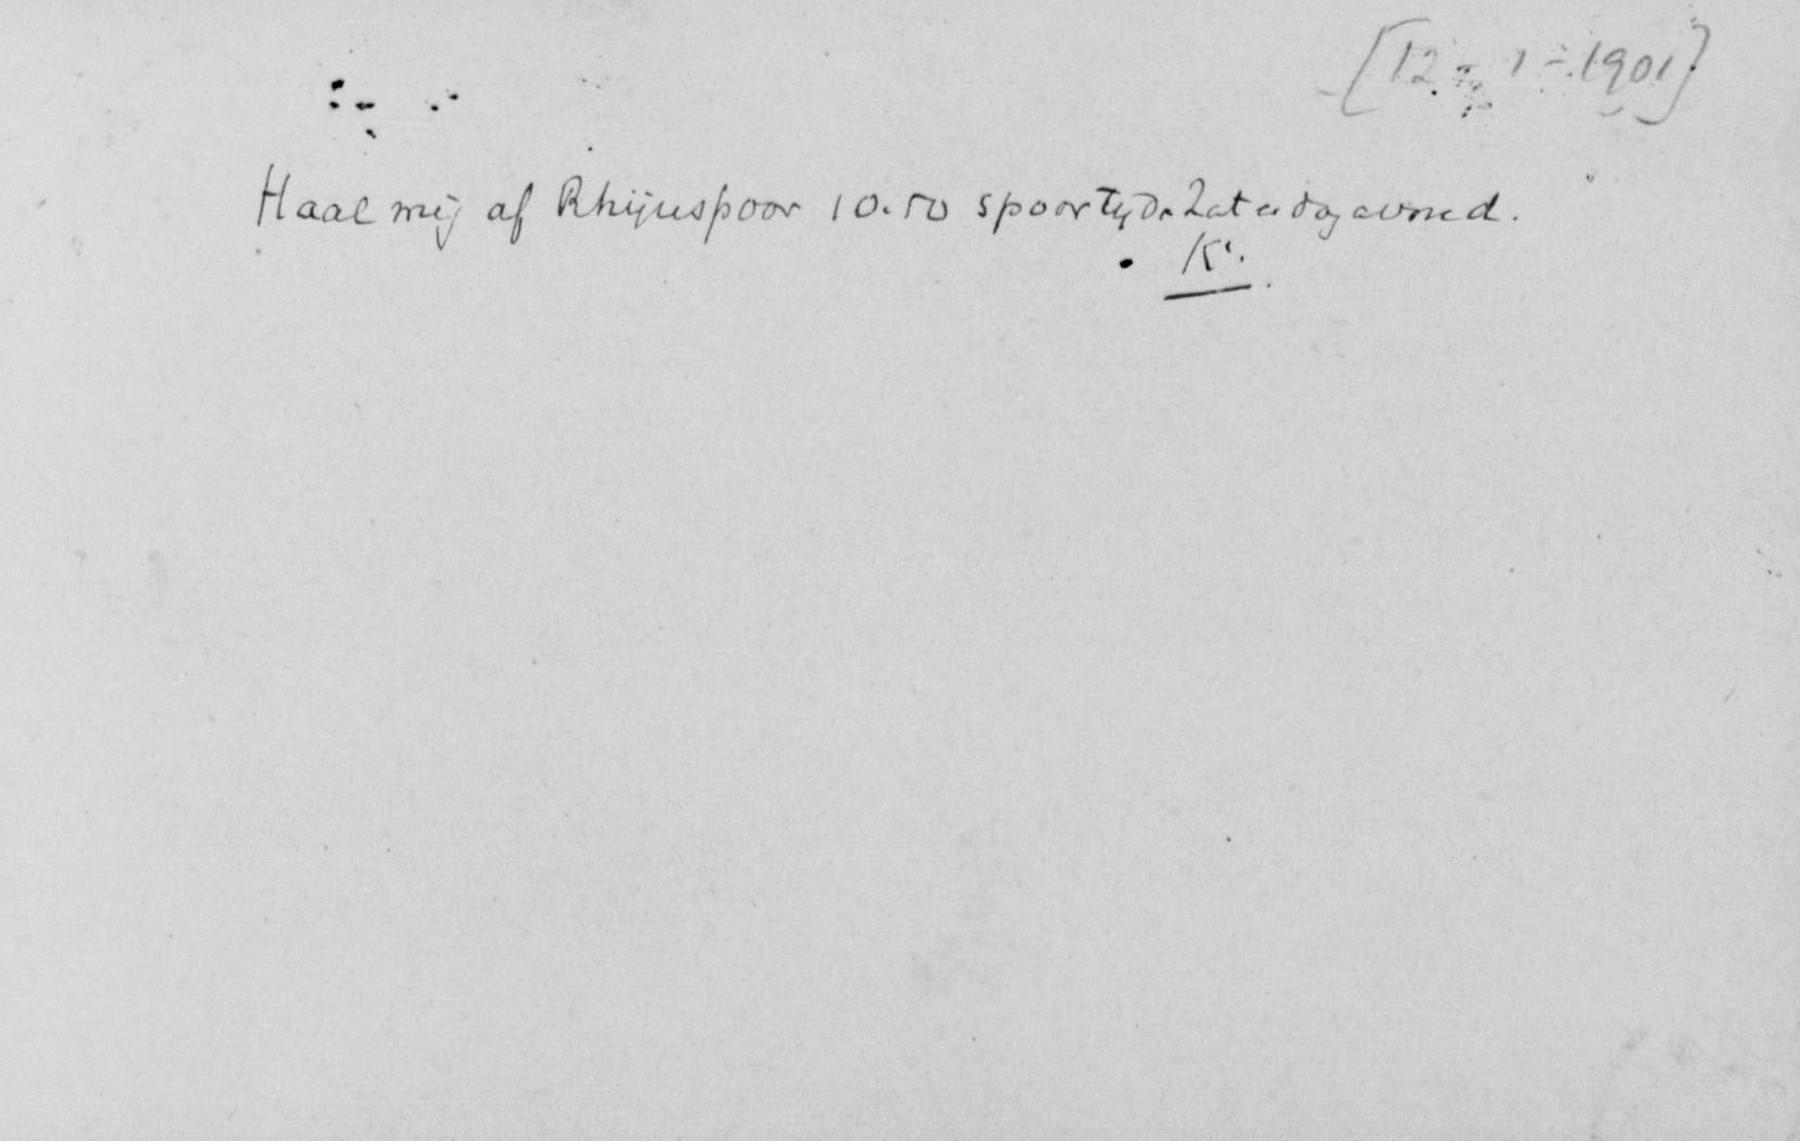 [12-1-1901]
Haal mij af Rhijnspoor 10.50 spoortijd. Zaterdagavond.
K.